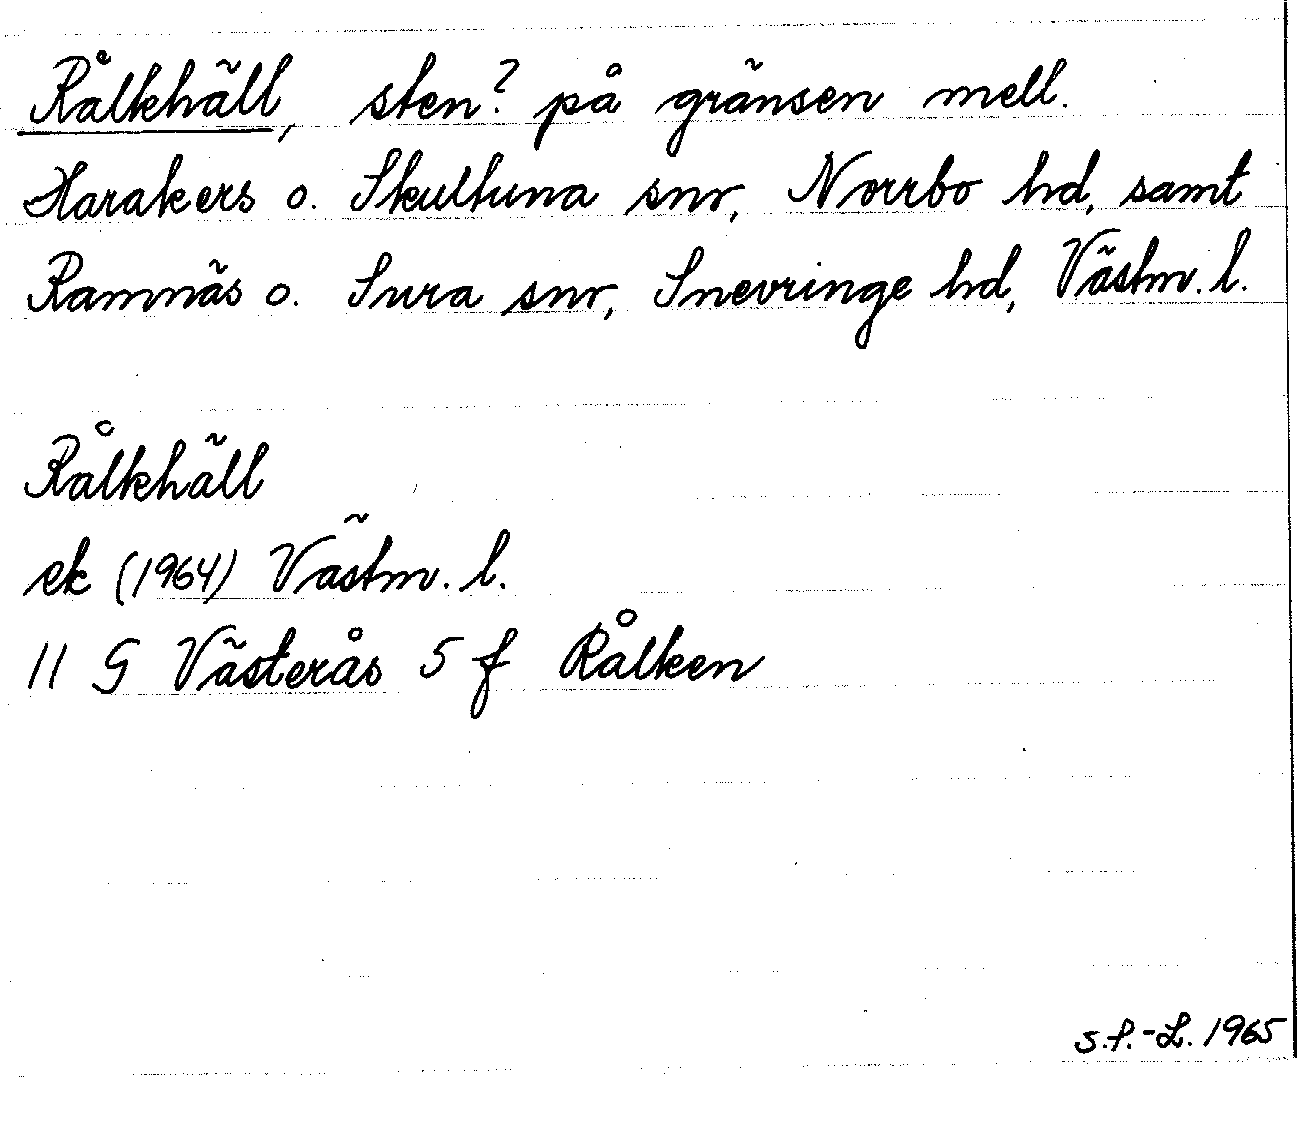 Rålkhäll, sten? på gränsen mell.
Harakers o. Skultuna snr, Norrbo hd, samt
Ramnäs o. Sura snr, Snevringe hd, Västm. l.
Rålkhäll
ek (1964) Västm. l.
11 G Västerås 5 f Rålken
S.f.-L. 1965